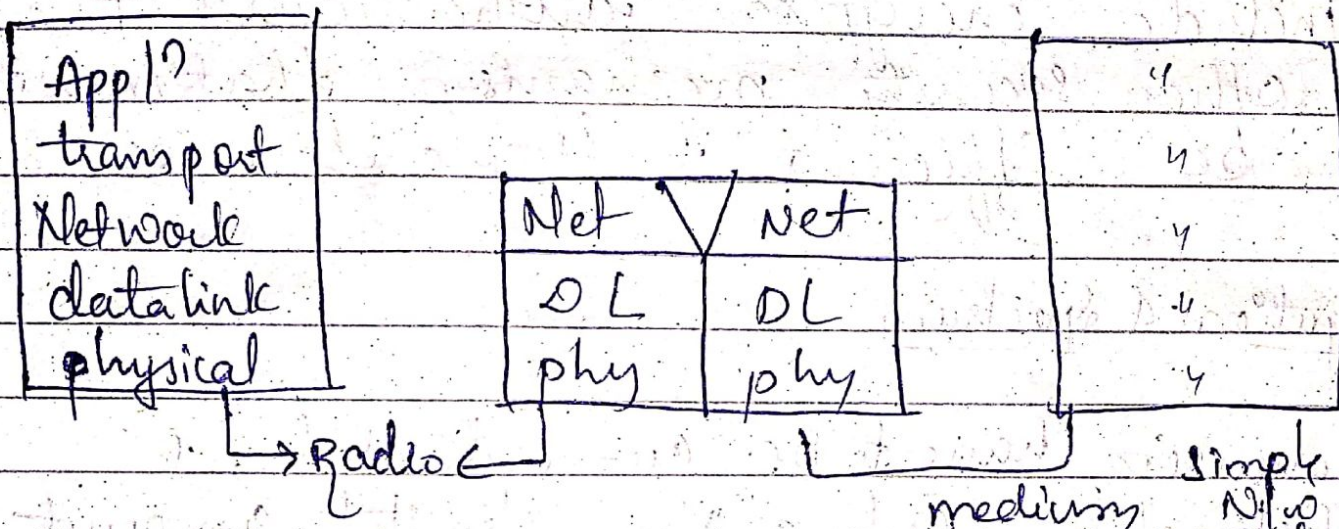 Appl?
transport
Network
datalink
physical
Net Net
DL DL
phy phy
"
"
"
"
"
Radio
medium
simple
N/w